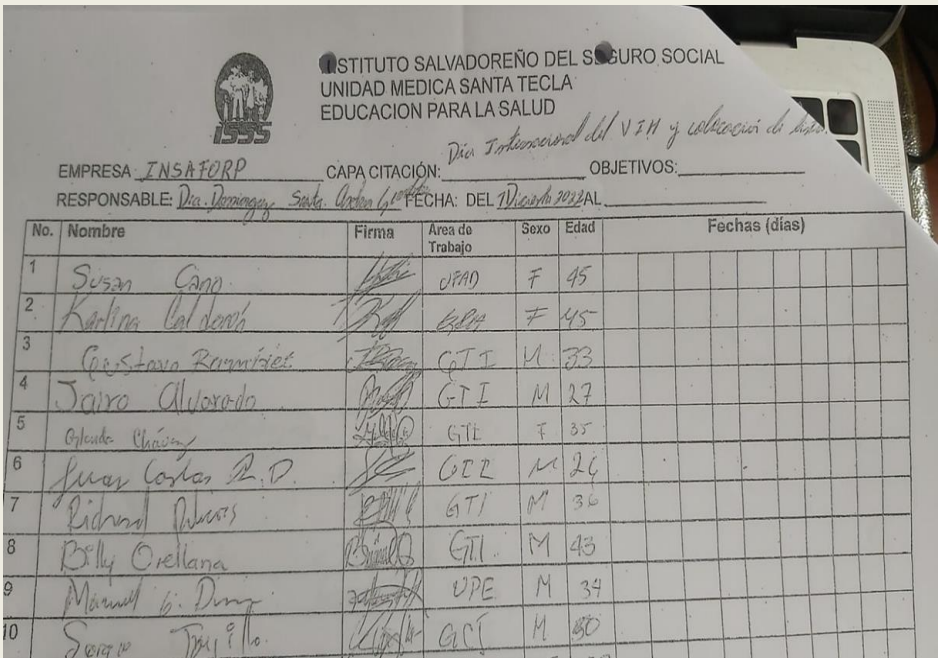 ISTITUTO SALVADOREÑO DEL SEGURO SOCIAL
UNIDAD MEDICA SANTA TECLA
EDUCACION PARA LA SALUD
ISSS
EMPRESA: INSAFORP CAPACITACIÓN: Dia Internacional del VIH y colocación de OBJETIVOS:
RESPONSABLE: Dra. Dominguez FECHA: DEL AL
No. Nombre Firma Area de Trabajo Sexo Edad Fechas (días)
1 Susan Cano F 45
2 Karlina Calderón F 45
3 Gustavo GTI M 33
4 Jairo Alvarado GTI M 27
5 Chávez GTI F 35
6 Juan Carlos R.D. M
7 Richard GTI M 36
8 Billy Orellana GTI M 43
9 Manuel UPE M 34
10 Sergio M 50